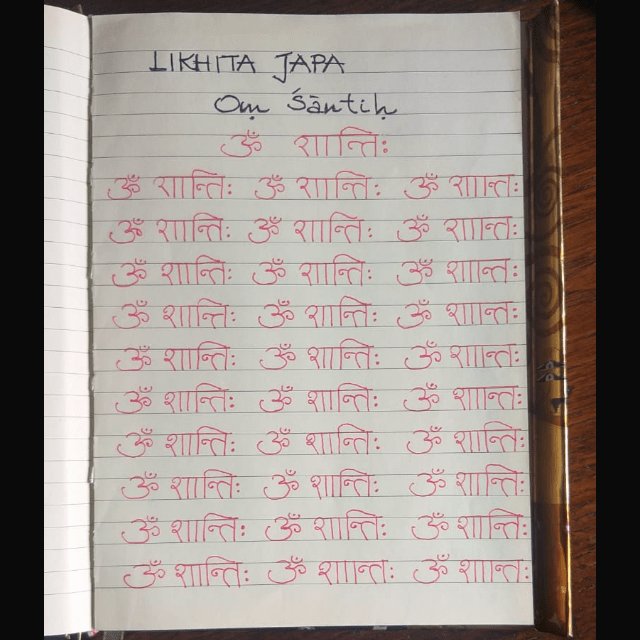 LIKHITA JAPA
Oṃ Śāntiḥ
ॐ शान्तिः
ॐ शान्तिः ॐ शान्तिः ॐ शान्तिः
ॐ शान्तिः ॐ शान्तिः ॐ शान्तिः
ॐ शान्तिः ॐ शान्तिः ॐ शान्तिः
ॐ शान्तिः ॐ शान्तिः ॐ शान्तिः
ॐ शान्तिः ॐ शान्तिः ॐ शान्तिः
ॐ शान्तिः ॐ शान्तिः ॐ शान्तिः
ॐ शान्तिः ॐ शान्तिः ॐ शान्तिः
ॐ शान्तिः ॐ शान्तिः ॐ शान्तिः
ॐ शान्तिः ॐ शान्तिः ॐ शान्तिः
ॐ शान्तिः ॐ शान्तिः ॐ शान्तिः